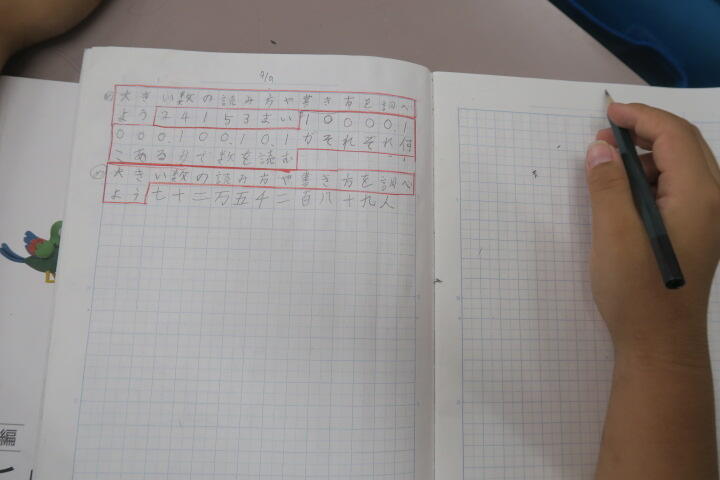 9/9
め大きい数の読み方や書き方を調べ
よう24153まい10000,1
000,100,10,1がそれぞれ何
こあるかで数を読む
め大きい数の読み方や書き方を調べ
よう七十三万五千二百八十九人
編